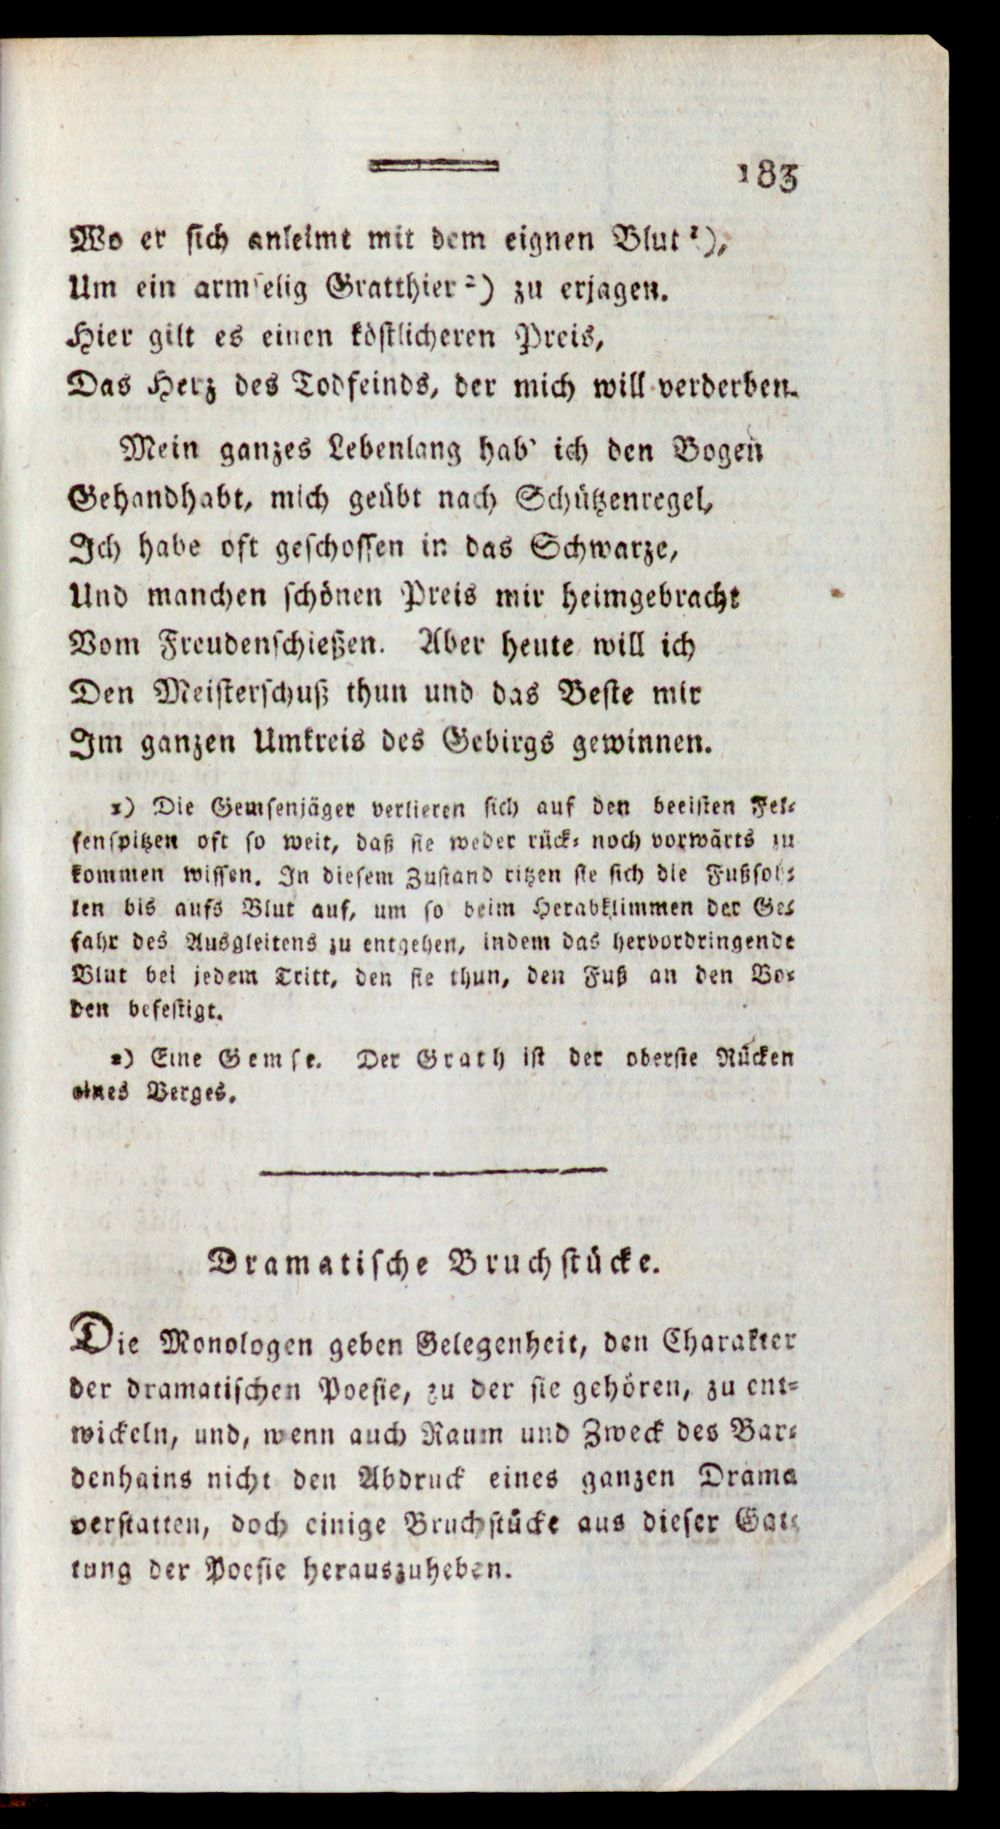 183
Wo er sich anleimt mit dem eignen Blut ¹),
Um ein armselig Gratthier ²) zu erjagen.
Hier gilt es einen köstlicheren Preis,
Das Herz des Todfeinds, der mich will verderben.
Mein ganzes Lebenlang hab' ich den Bogen
Gehandhabt, mich geübt nach Schützenregel,
Ich habe oft geschossen in das Schwarze,
Und manchen schönen Preis mir heimgebracht
Vom Freudenschießen. Aber heute will ich
Den Meisterschuß thun und das Beste mir
Im ganzen Umkreis des Gebirgs gewinnen.
1) Die Gemsenjäger verlieren sich auf den beeisten Fel-
senspitzen oft so weit, daß sie weder rück- noch vorwärts zu
kommen wissen. In diesem Zustand ritzen sie sich die Fußsoh-
len bis aufs Blut auf, um so beim Herabklimmen der Ge-
fahr des Ausgleitens zu entgehen, indem das hervordringende
Blut bei jedem Tritt, den sie thun, den Fuß an den Bo-
den befestigt.
2) Eine Gemse. Der Grath ist der oberste Rücken
eines Berges.
Dramatische Bruchstücke.
Die Monologen geben Gelegenheit, den Charakter
der dramatischen Poesie, zu der sie gehören, zu ent-
wickeln, und, wenn auch Raum und Zweck des Bar-
denhains nicht den Abdruck eines ganzen Drama
verstatten, doch einige Bruchstücke aus dieser Gat-
tung der Poesie herauszuheben.